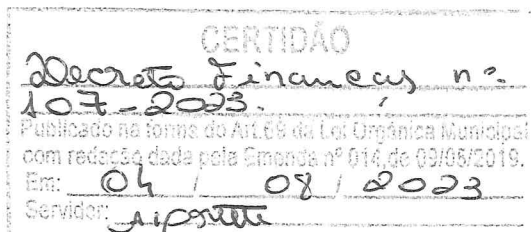 CERTIDÃO
Decreto Financas nº
107-2023.
Publicado na forma do Art.69 da Lei Orgânica Municipal
com redação dada pela Emenda nº 014,de 09/05/2019.
Em: 04 / 08 / 2023
Servidor: